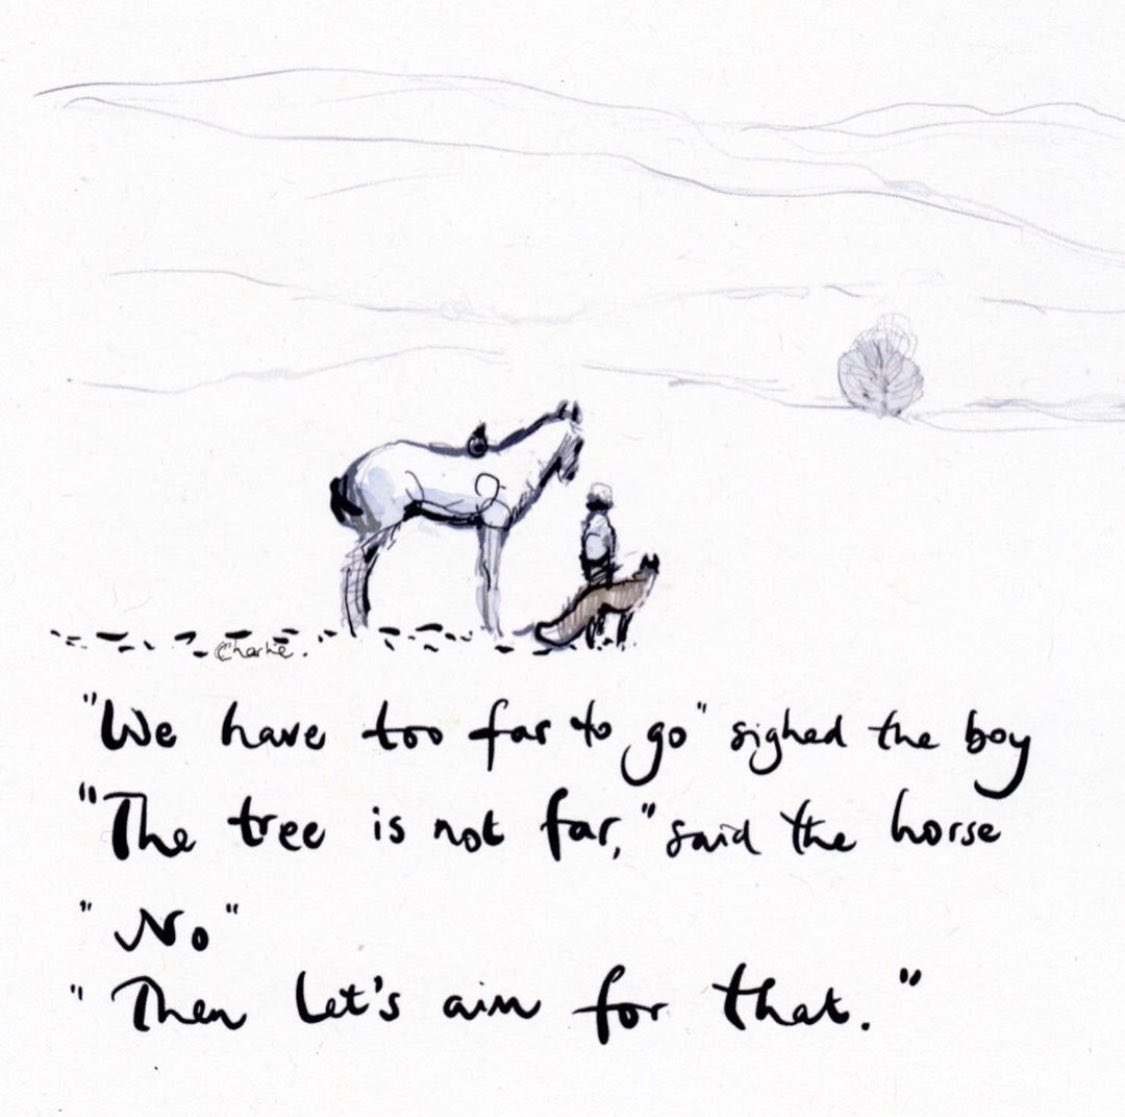 Charlie.
"We have too far to go" sighed the boy
"The tree is not far," said the horse
"No"
"Then let's aim for that."